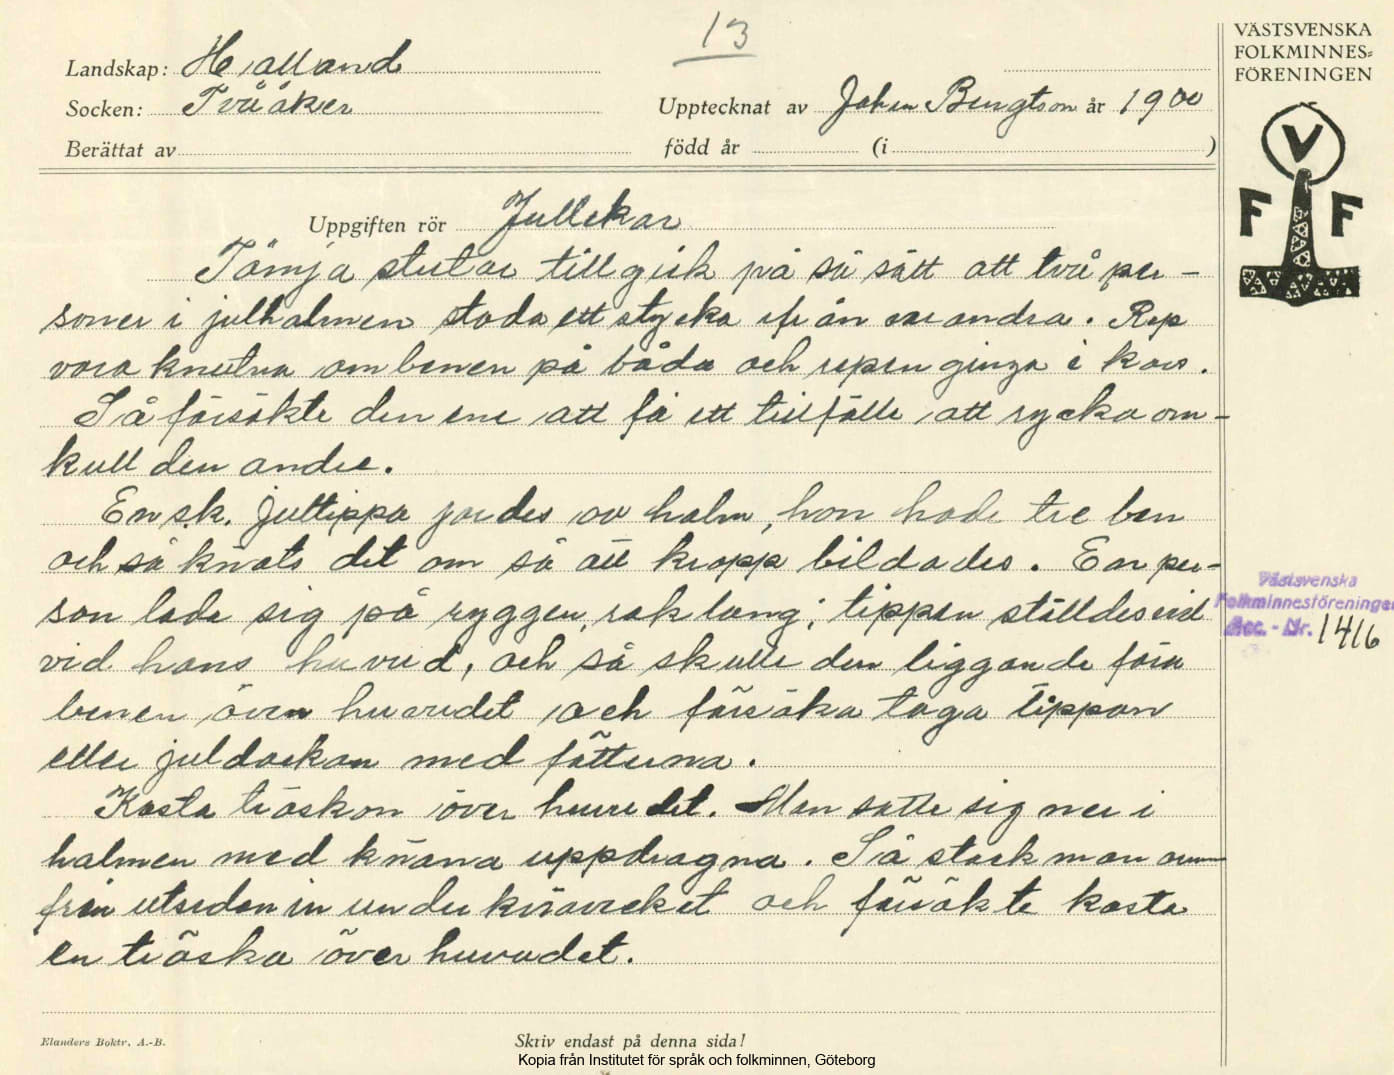 13
VÄSTSVENSKA
FOLKMINNES-
FÖRENINGEN
V
F F
Landskap: Halland
Socken: Tvååker
Upptecknat av Johan Bengtson år 1900
Berättat av
född år (i )
Uppgiften rör Jullekar
Tämja stutar tillgick på så sätt att två per-
soner i julhalmen stodo ett stycke ifrån varandra. Rep
voro knutna om benen på båda och repen gingo i kors.
Så försökte den ene att få ett tillfälle att rycka om-
kull den andre.
En s.k. jultippa gordes av halm, hon hade tre ben
och så knöts det om så att kropp bildades. En per-
son lade sig på ryggen, raklång; tippan ställdes vid
vid hans huvud, och så skulle den liggande föra
benen över huvudet och försöka taga tippan
eller juldockan med fötterna.
Kasta träskon över huvudet. Man satte sig ner i
halmen med knäna uppdragna. Så stack man armen
från utsidan in under knävecket och försökte kasta
en träsko över huvudet.
Västsvenska
Folkminnesföreningen
Acc. - Nr. 1416
Elanders Boktr. A.-B.
Skriv endast på denna sida!
Kopia från Institutet för språk och folkminnen, Göteborg